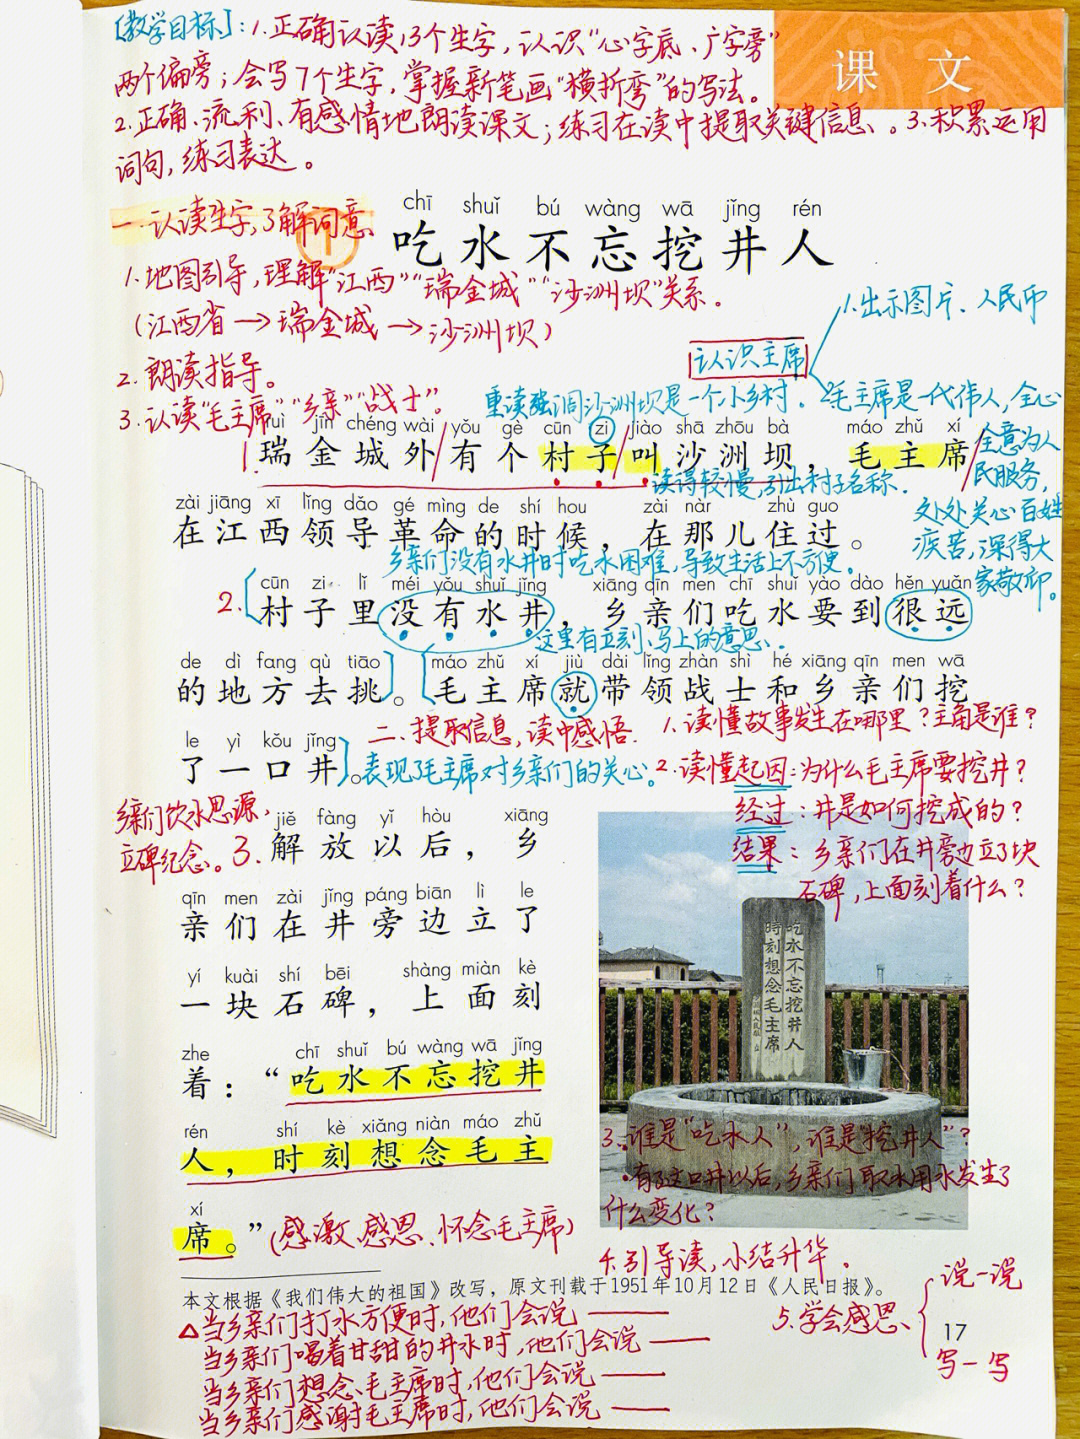 [教学目标]:1.正确认读13个生字,认识"心字底、广字旁"
课 文
两个偏旁;会写7个生字,掌握新笔画"横折弯"的写法。
2.正确、流利、有感情地朗读课文;练习在读中提取关键信息。3.积累运用
词句,练习表达。
一.认读生字,了解词意
1
chī shuǐ bú wàng wā jǐng rén
吃水不忘挖井人
1.地图引导,理解"江西""瑞金城""沙洲坝"关系。
(江西省→瑞金城→沙洲坝)
2.朗读指导。
3.认读"毛主席""乡亲""战士"。
认识主席
1.出示图片、人民币
2.毛主席是一代伟人,全心
全意为人
民服务,
处处关心百姓
疾苦,深得大
家敬仰。
重读强调沙洲坝是一个小乡村.
ruì jīn chéng wài yǒu gè cūn zi jiào shā zhōu bà máo zhǔ xí
1.瑞金城外/有个村子/叫沙洲坝,毛主席/
读得较慢,引出村子名称.
zài jiāng xī lǐng dǎo gé mìng de shí hou zài nàr zhù guo
在江西领导革命的时候,在那儿住过。
乡亲们没有水井时吃水困难,导致生活上不方便。
cūn zi lǐ méi yǒu shuǐ jǐng xiāng qīn men chī shuǐ yào dào hěn yuǎn
2.村子里没有水井,乡亲们吃水要到很远
这里有立刻、马上的意思.
de dì fang qù tiāo máo zhǔ xí jiù dài lǐng zhàn shì hé xiāng qīn men wā
的地方去挑。毛主席就带领战士和乡亲们挖
二、提取信息,读中感悟.
1.读懂故事发生在哪里?主角是谁?
le yì kǒu jǐng
了一口井。
表现了毛主席对乡亲们的关心.
2.读懂起因:为什么毛主席要挖井?
经过:井是如何挖成的?
结果:乡亲们在井旁边立了块
石碑,上面刻着什么?
乡亲们饮水思源,
立碑纪念。
jiě fàng yǐ hòu xiāng
3.解放以后,乡
qīn men zài jǐng páng biān lì le
亲们在井旁边立了
yí kuài shí bēi shàng miàn kè
一块石碑,上面刻
zhe chī shuǐ bú wàng wā jǐng
着:"吃水不忘挖井
rén shí kè xiǎng niàn máo zhǔ
人,时刻想念毛主
xí
席。"
(感激、感恩、怀念毛主席)
吃水不忘挖井人
時刻想念毛主席
3.谁是"吃水人",谁是"挖井人"?
·有了这口井以后,乡亲们取水用水发生了
什么变化?
4.引导读,小结升华。
本文根据《我们伟大的祖国》改写,原文刊载于1951年10月12日《人民日报》。
5.学会感恩
说一说
写一写
17
△当乡亲们打水方便时,他们会说
当乡亲们喝着甘甜的井水时,他们会说
当乡亲们想念毛主席时,他们会说
当乡亲们感谢毛主席时,他们会说